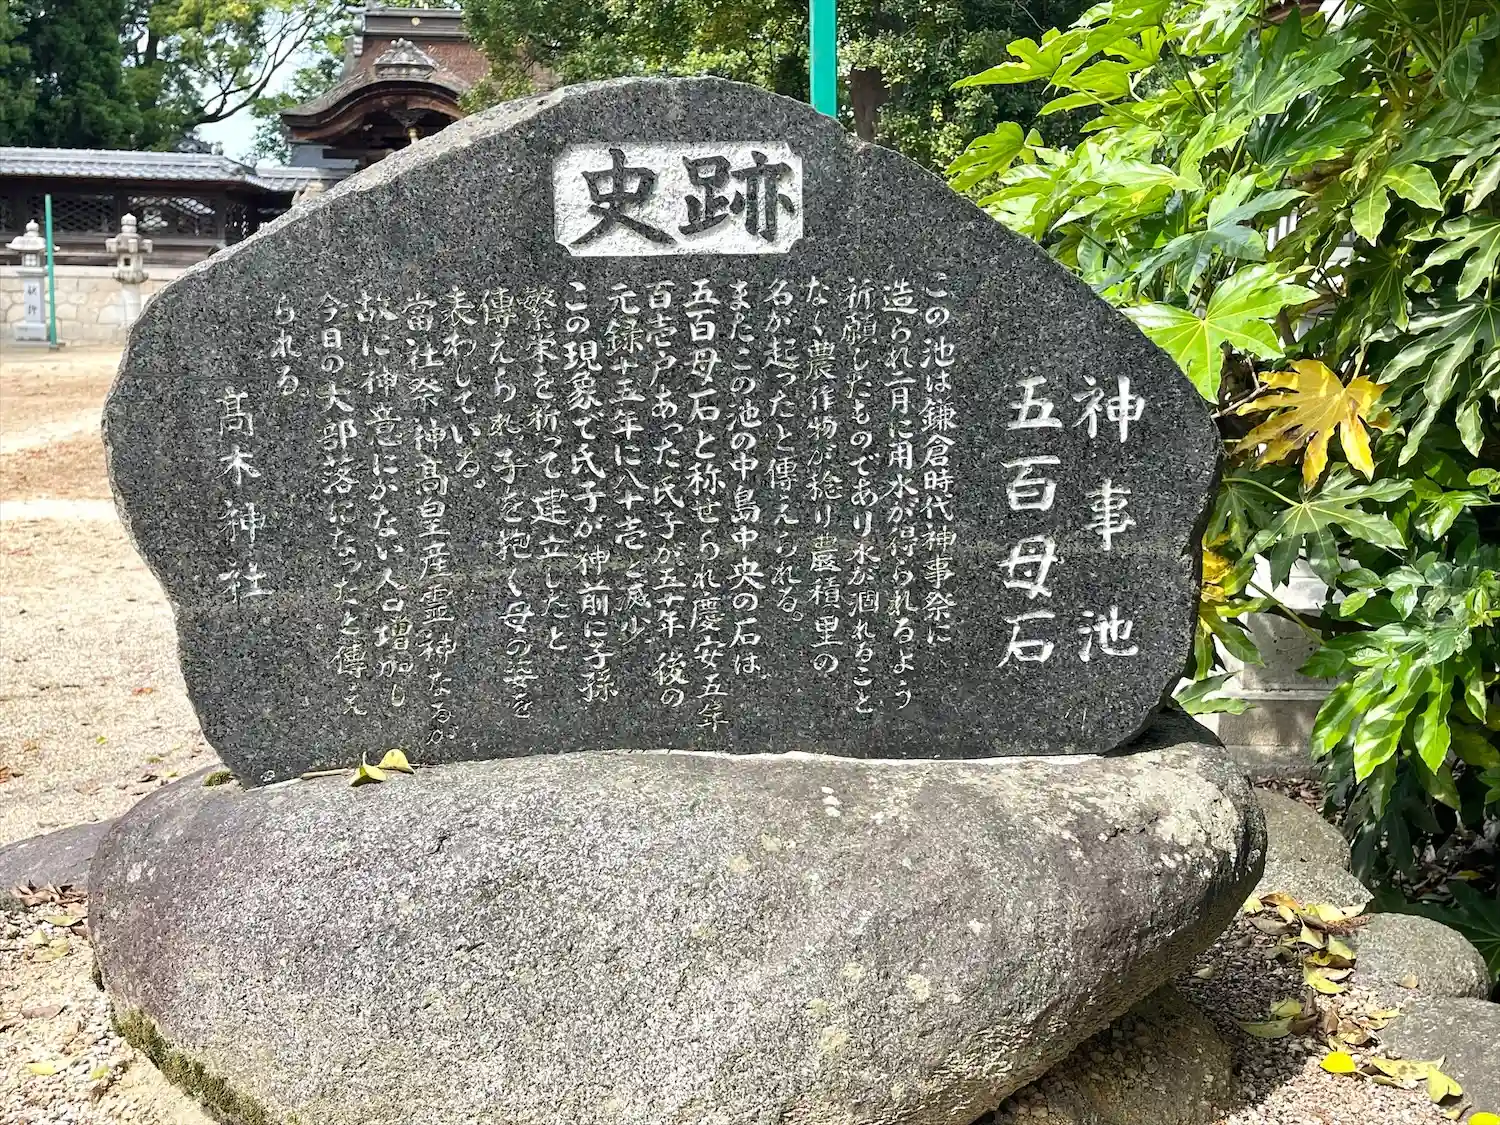 史跡
神事池
五百母石
この池は鎌倉時代神事祭に
造られ二月に用水が得られるよう
祈願したものであり水が涸れること
なく農作物が稔り農積里の
名が起ったと傳えられる。
またこの池の中島中央の石は
五百母石と称せられ慶安五年
百壱戸あった氏子が五十年後の
元録十五年に八十壱と減少
この現象で氏子が神前に子孫
繁栄を祈って建立したと
傳えられ、子を抱く母の姿を
表わしている。
當社祭神髙皇産霊神なるが
故に神意にかない人口増加し
今日の大部落になったと傳え
られる。
髙木神社